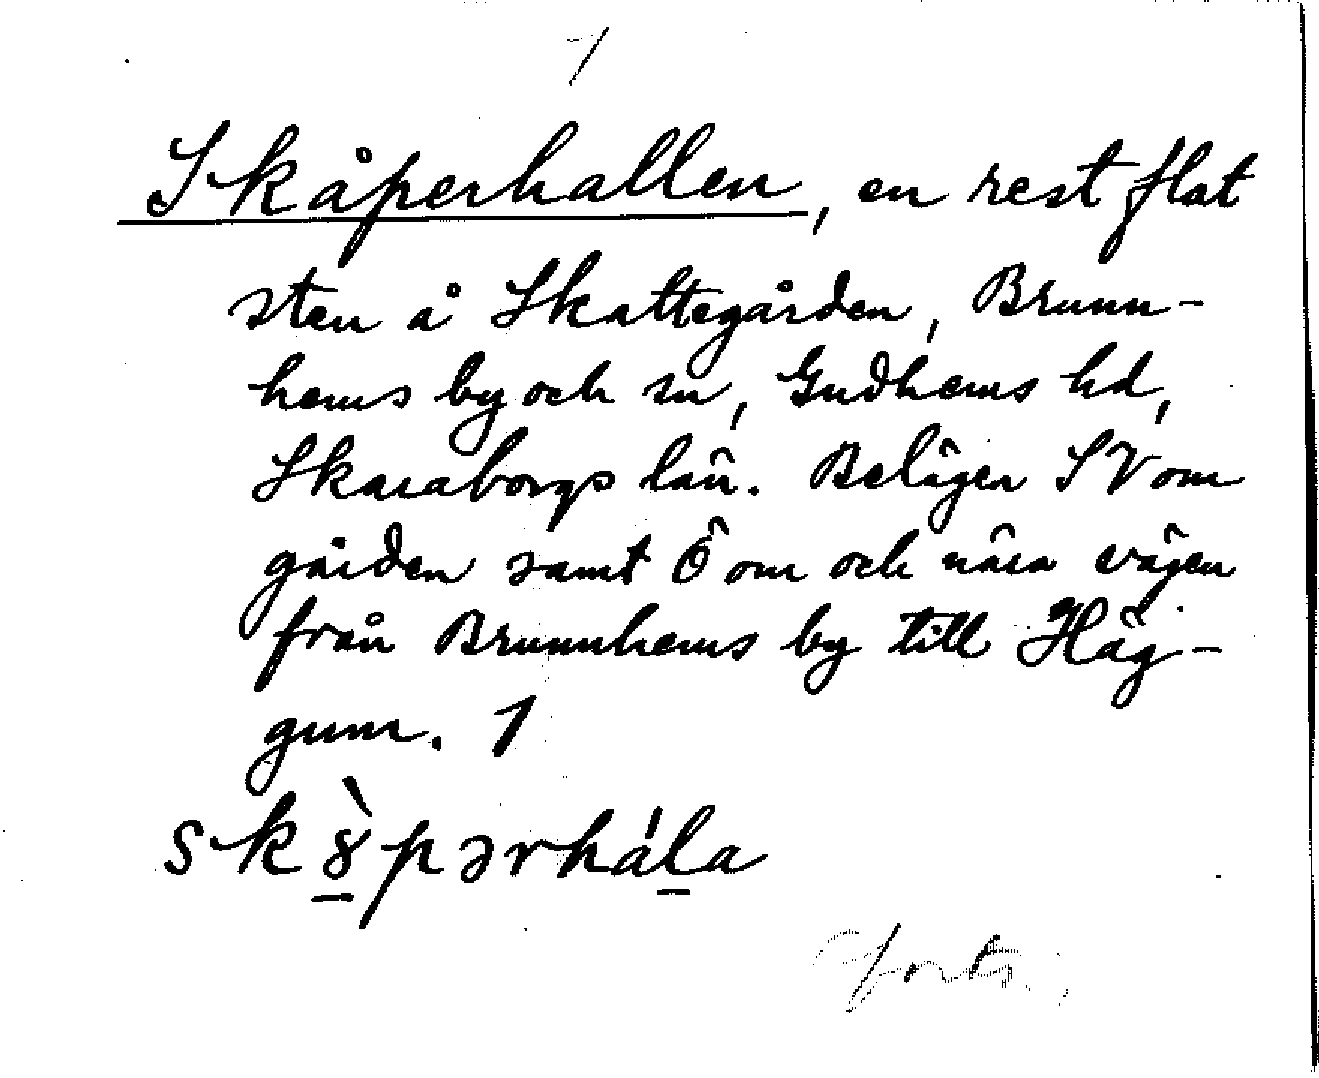 Skåperhallen, en rest flat
sten å Skattegården, Brunn-
hems by och sn, Gudhems hd,
Skaraborgs län. Belägen SV om
gården samt Ö om och nära vägen
från Brunnhems by till Häg-
gum. 1
forts.